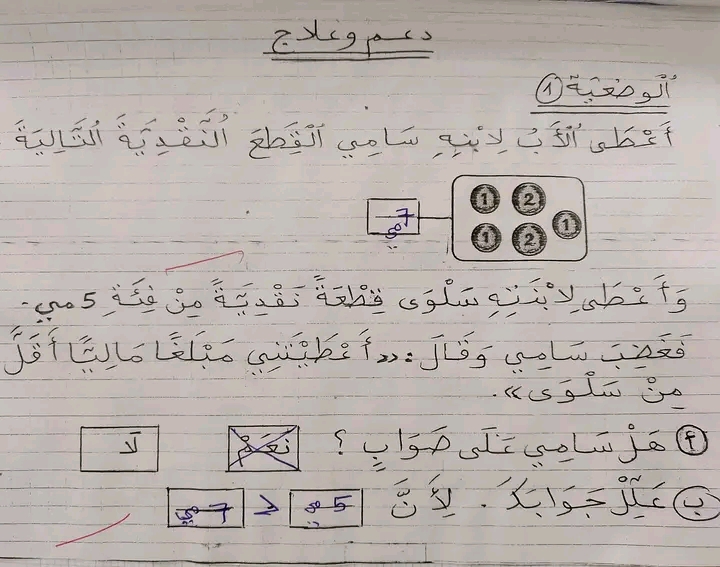 دعم وعلاج
اُلْوضعية ①
أَعْطَى اُلْأَبُ لِابْنِهِ سَامِي اُلْقِطَعَ اُلنَّقْدِيَّةَ اُلتَّالِيَةَ
7 مي
1 2
1 2 1
وَأَعْطَى لِابْنَتِهِ سَلْوَى قِطْعَةً نَقْدِيَّةً مِنْ فِئَةِ 5 مي.
فَغَضِبَ سَامِي وَقَالَ: «أَعْطَيْتَنِي مَبْلَغًا مَالِيًّا أَقَلَّ
مِنْ سَلْوَى».
أ هَلْ سَامِي عَلَى صَوَابٍ ؟ نَعَمْ لَا
ب عَلِّلْ جَوَابَكَ. لِأَنَّ 5 مي > 7 مي